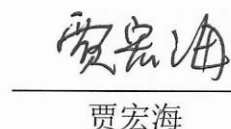 贾宏海
贾宏海